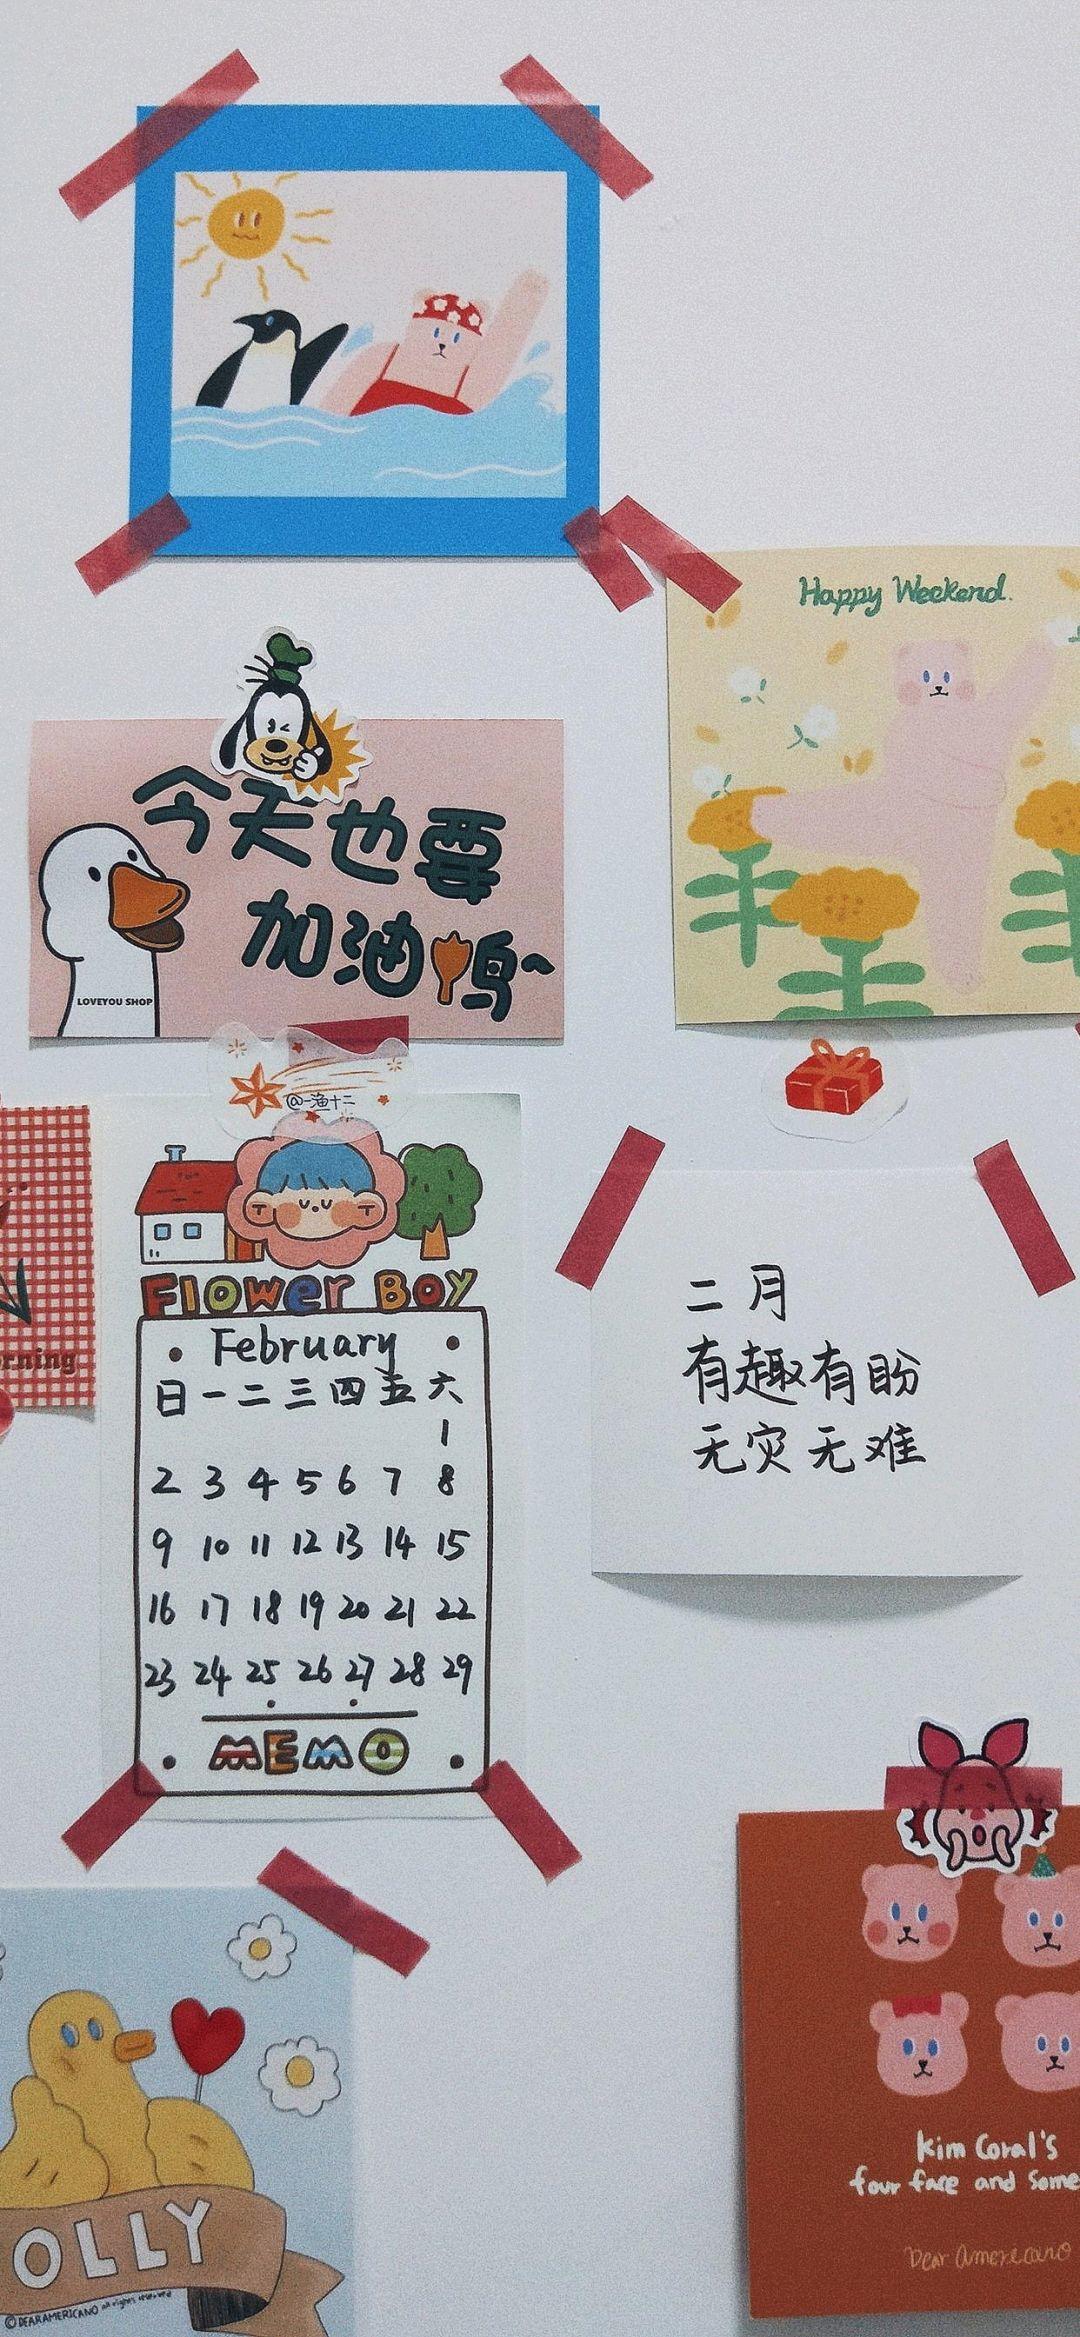 Happy Weekend.
今天也要
加油鸭~
LOVEYOU SHOP
@一渔十二
FLOWER BOY
February
日 一 二 三 四 五 六
1
2 3 4 5 6 7 8
9 10 11 12 13 14 15
16 17 18 19 20 21 22
23 24 25 26 27 28 29
MEMO
rning
二月
有趣有盼
无灾无难
OLLY
©DEARAMERICANO all rights reserved
kim Coral's
four face and some
Dear Americano